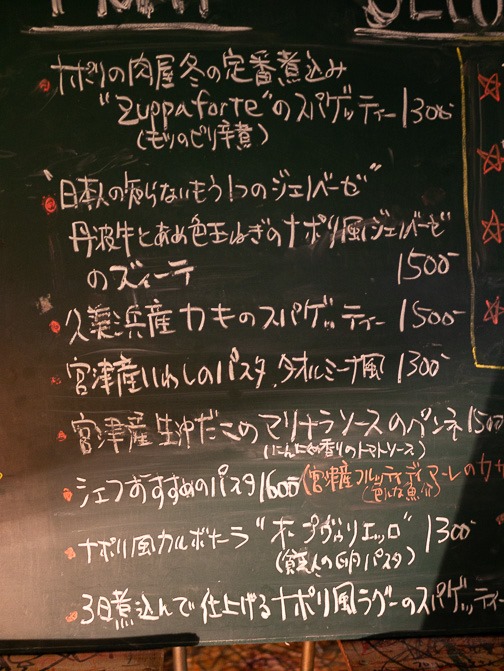 ナポリの肉屋冬の定番煮込み
"Zuppa forte"のスパゲッティー 1300-
(もつのピリ辛煮)
"日本人の知らないもう1つのジェノベーゼ"
丹波牛とあめ色玉ねぎのナポリ風ジェノベーゼ
のズィーテ 1500-
久美浜産カキのスパゲッティー 1500-
宮津産いわしのパスタ、タオルミーナ風 1300-
宮津産生沖だこのマリナラソースのペンネ 1500
(にんにく香りのトマトソース)
シェフおすすめのパスタ 1600- (宮津産フルッティディマーレのカサ
(色んな魚介)
ナポリ風カルボナーラ "オープヴェリエッロ" 1300-
(貧乏人の卵パスタ)
3日煮込んで仕上げるナポリ風ラグーのスパゲッティー